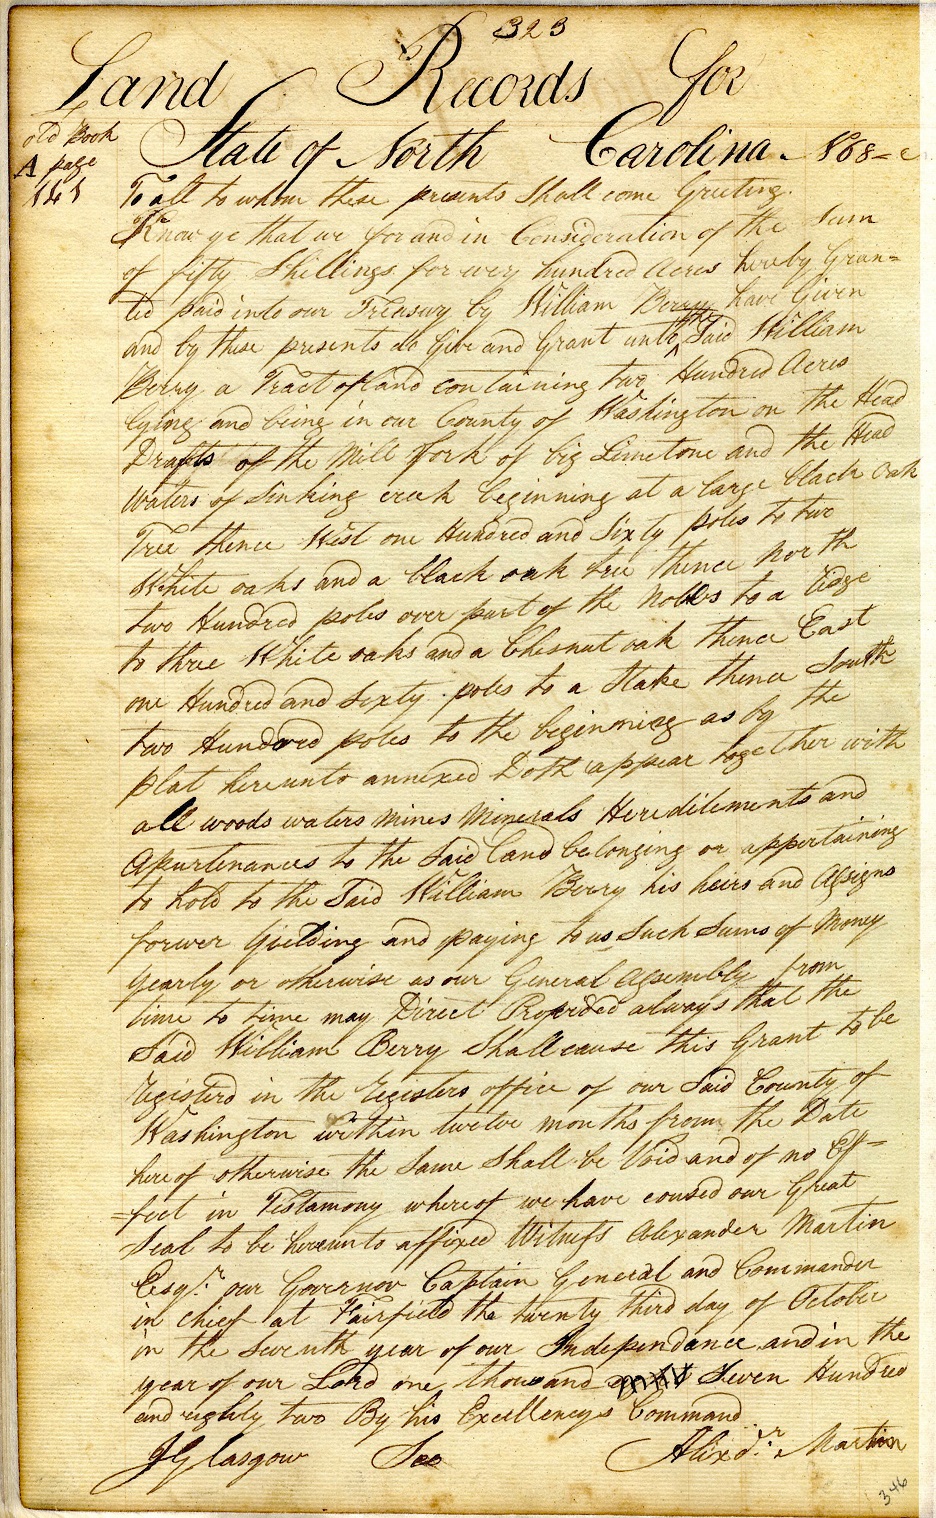 323
Land Records for
old Book
A page
141
State of North Carolina. No 68
To all to whom these presents Shall come Greeting.
Know ye that we for and in Consideration of the Sum
of fifty Shillings for every hundred Acres hereby Gran=
ted paid into our Treasury by William Berry have Given
and by these presents do Give and Grant unto the Said William
Berry a Tract of Land containing two Hundred Acres
lying and being in our County of Washington on the Head
Drafts of the Mill fork of big Limetone and the Head
Waters of Sinking creek beginning at a large black oak
Tree thence West one Hundred and Sixty poles to two
White oaks and a black oak tree thence North
two Hundred poles over part of the Nobbs to a Ridge
to three White oaks and a Chesnut oak thence East
one Hundred and Sixty poles to a Stake thence South
two Hundred poles to the beginning as by the
plat hereunto annexed Doth appear together with
all woods waters mines Minerals Hereditements and
Apurtenances to the Said Land belonging or appertaining
to hold to the Said William Berry his heirs and Assigns
forever yielding and paying to us Such Sums of Money
yearly or otherwise as our General Assembly from
time to time may Direct Provided always that the
Said William Berry Shall cause this Grant to be
registerd in the registers office of our Said County of
Washington within twelve months from the Date
hereof otherwise the Same Shall be Void and of no Eff=
=fect in Testamony whereof we have coused our Great
Seal to be hereunto affixed Witness Alexander Martin
Esqr. our Governor Captain General and Commander
in chief at Fairfield the twenty third day of October
in the Seventh year of our Independance and in the
year of our Lord one thousand Seven Hundred
and eighty two By his Excellencys Command
J Glasgow Sec Alixdr. Martin
346